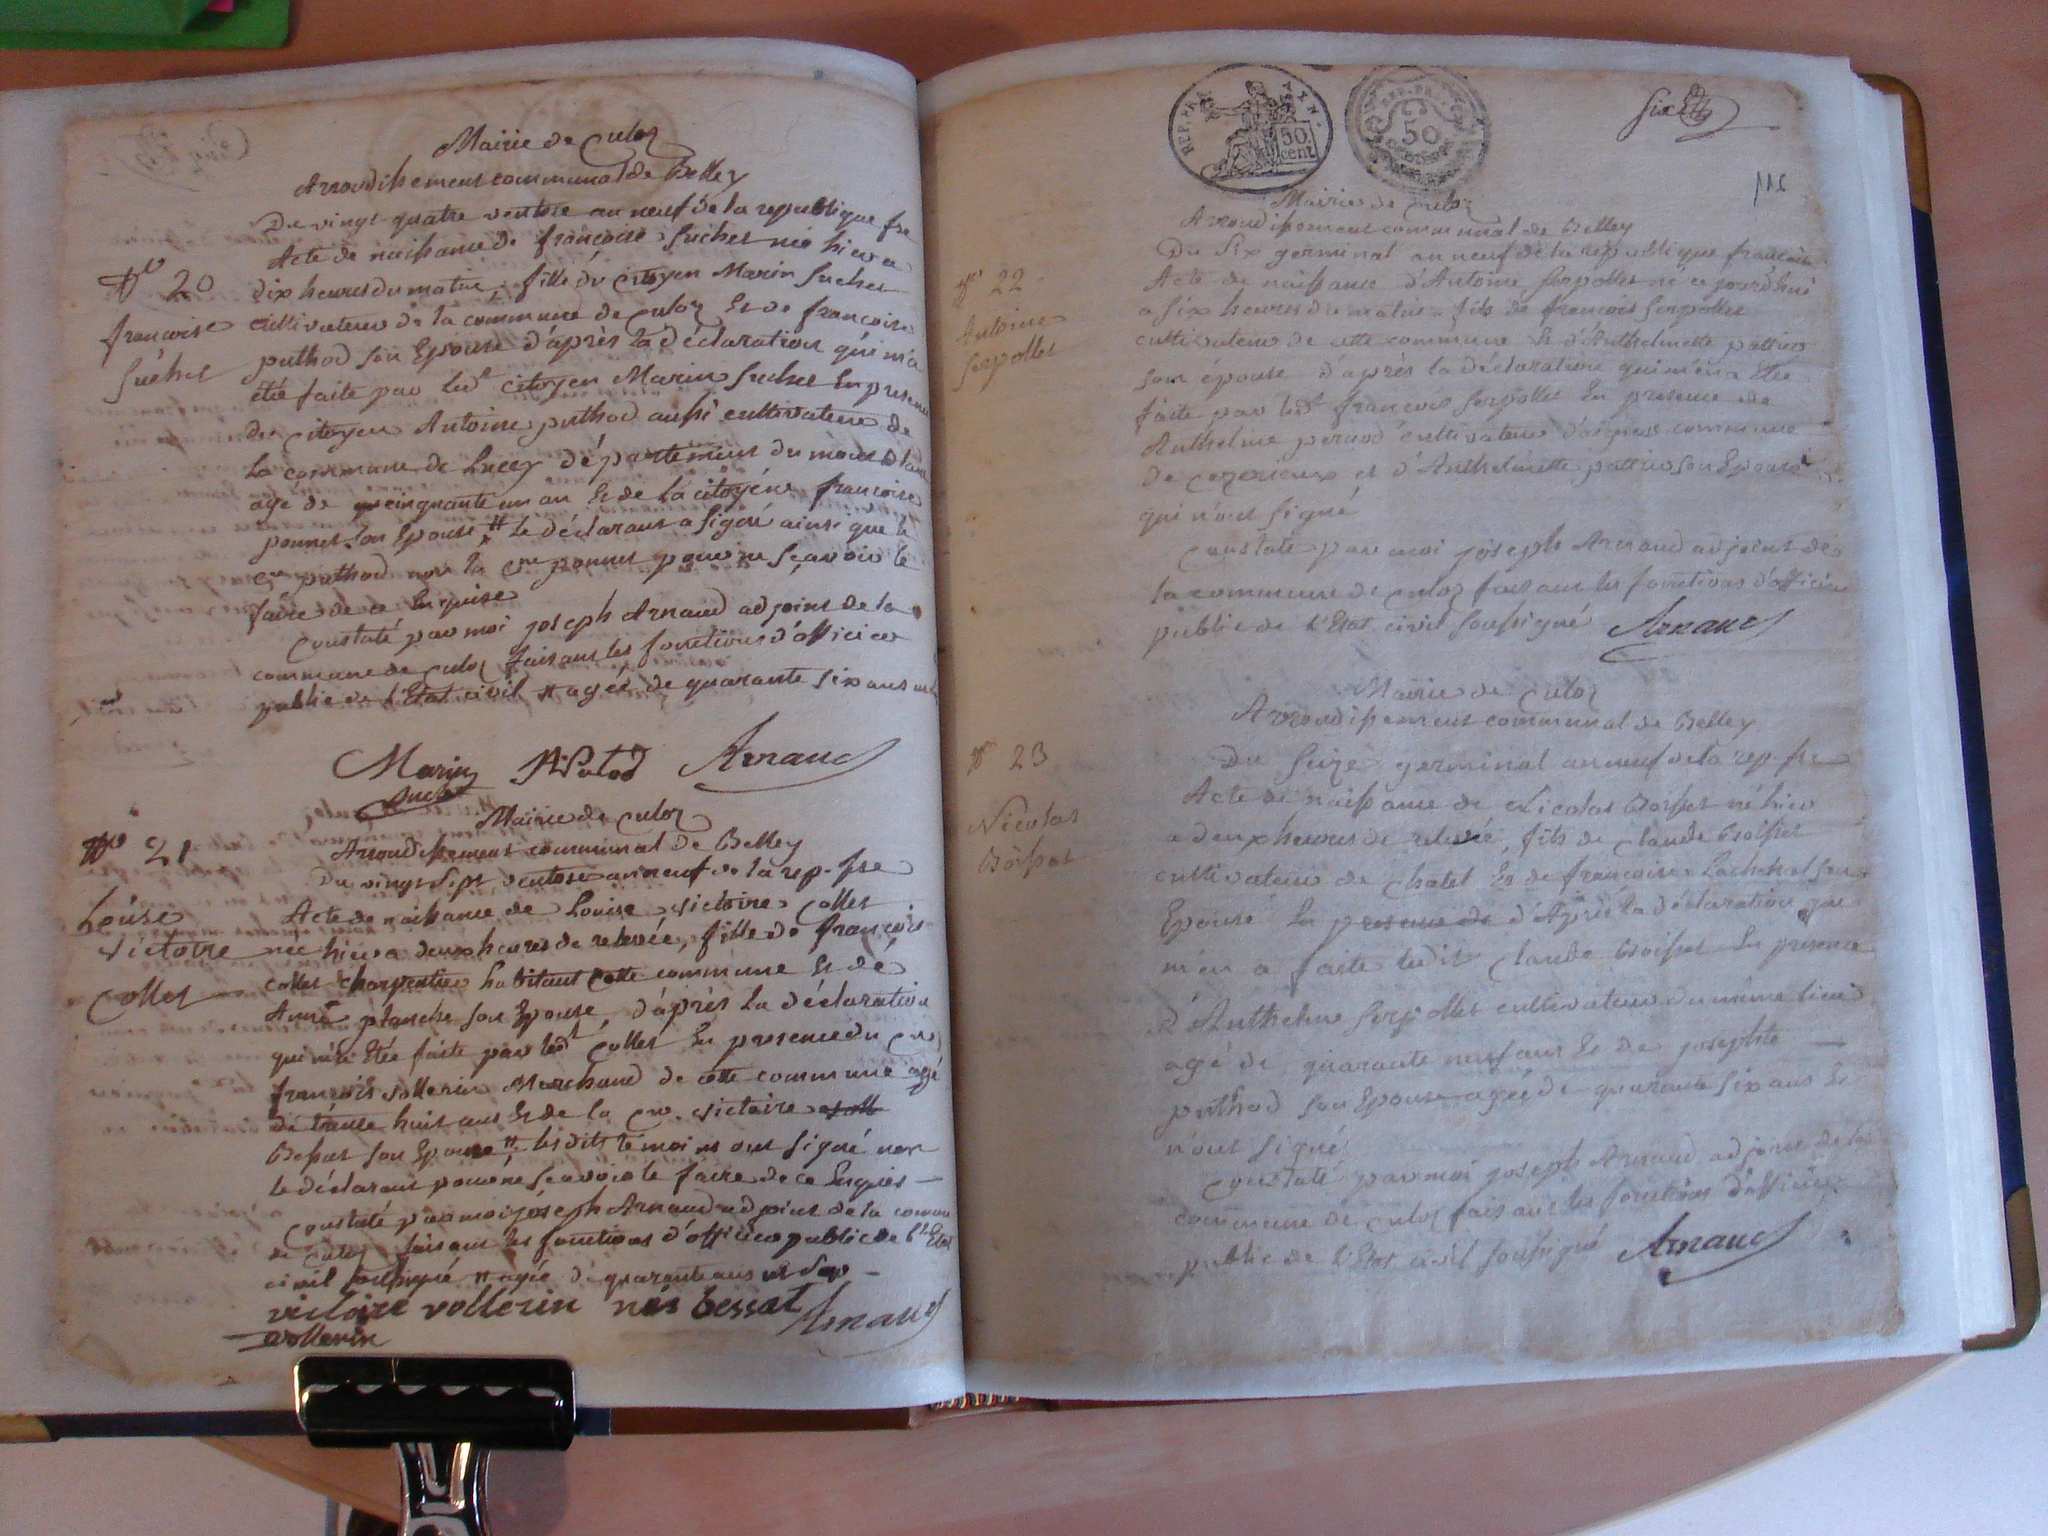 Mairie de Culoz
Arrondissement communal de Belley
Du vingt quatre ventose an neuf de la republique fse
Acte de naissance de françoise Suchet née hier a
N° 20
dix heures du matin, fille du citoyen Marin Suchet
françoise
Suchet
cultivateur de la commune de Culoz Et de françoise
puthod son Epouse d'après la déclaration qui m'a
été faite par ledt citoyen Marin Suchet En presence
du citoyen Antoine puthod aussi cultivateur de
la commune de Lucey département du mont blanc
agé de cinquante un an Et de la citoyéne françoise
ponnet son Epouse # le déclarant a signé ainsi que le
cen puthod non la cne ponnet pour ne sçavoir le
faire de ce Enquise
Constaté par moi joseph Arnaud adjoint de la
commune de Culoz faisant les fonctions d'officier
public de l'Etat civil # agée de quarante six ans
Marin Suchet
Putod
Arnaud
Mairie de Culoz
N° 21
Arrondissement communal de Belley
Du vingt sept ventose an neuf de la rep. fse
Loüise
Victoire
Collet
Acte de naissance de Louise Victoire Collet
née hier a deux heures de relevée, fille de françois
Collet charpentier habitant cette commune Et de
Anne planche son Epouse, d'après la déclaration
qui m'en Eté faite par ledt Collet En presence du Cen
françois vollerin Marchand de cette commune agé
de trente huit ans Et de la Cne. Victoire
Bessat son Epouse # lesdits temoins ont signé non
le déclarant pour ne sçavoir le faire de ce Enquis
Constaté par moi joseph Arnaud adjoint de la commune
de Culoz faisant les fonctions d'officier public de l'Etat
civil soussigné # agée de quarante ans
victoire vollerin née bessat
Arnaud
vollerin
REP. FRA
50
cent
50
six
116
Mairie de Culoz
Arrondissement communal de Belley
Du Six germinal an neuf de la republique françoise
N° 22
Antoine
Serpollet
Acte de naissance d'Antoine Serpollet né ce jourd'hui
a six heures du matin fils de françois Serpollet
cultivateur de cette commune Et d'Anthelmette pattier
son épouse d'après la déclaration qui m'en a Eté
faite par ledt françois Serpollet En presence de
Anthelme peraud cultivateur d'aignoz commune
de Ceyzerieux et d'Anthelmette pattier son Epouse
qui n'ont signé
Constaté par moi joseph Arnaud adjoint de
la commune de Culoz faisant les fonctions d'officier
public de l'Etat civil soussigné
Arnaud
Mairie de Culoz
Arrondissement communal de Belley
N° 23
Nicolas
Boisset
Du Seize germinal an neuf de la rep. fse
Acte de naissance de Nicolas Boisset né hier
a deux heures de relevée, fils de Claude Boisset
cultivateur de Chatel Et de françoise Lachat son
Epouse En presence de d'Après la déclaration que
m'en a faite ledit Claude Boisset En presence
d'Anthelme Serpollet cultivateur du même lieu
agé de quarante neuf ans Et de josephte
puthod son Epouse agée de quarante six ans Et
n'ont signé
Constaté par moi joseph Arnaud adjoint de la
commune de Culoz faisant les fonctions d'officier
public de l'Etat civil soussigné
Arnaud